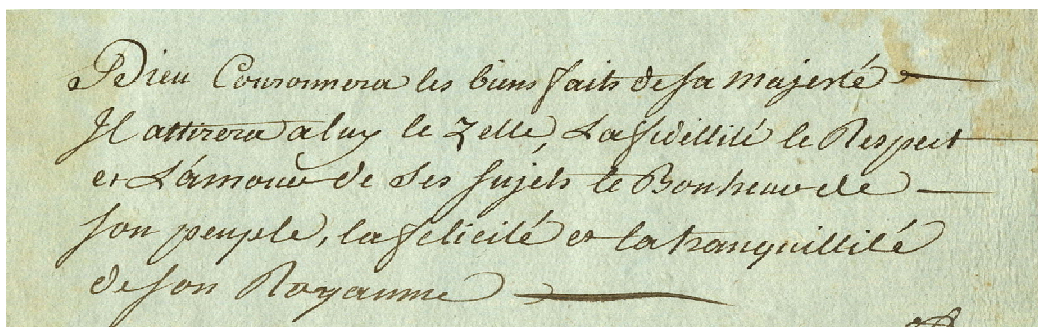 Dieu Couronnera les bien faits de sa majesté
Il attirera a luy le Zelle, La fidellité le Respect
et L'amour de Ses sujets le Bonheur de
son peuple, la felicité et la tranquillité
de son Royaume